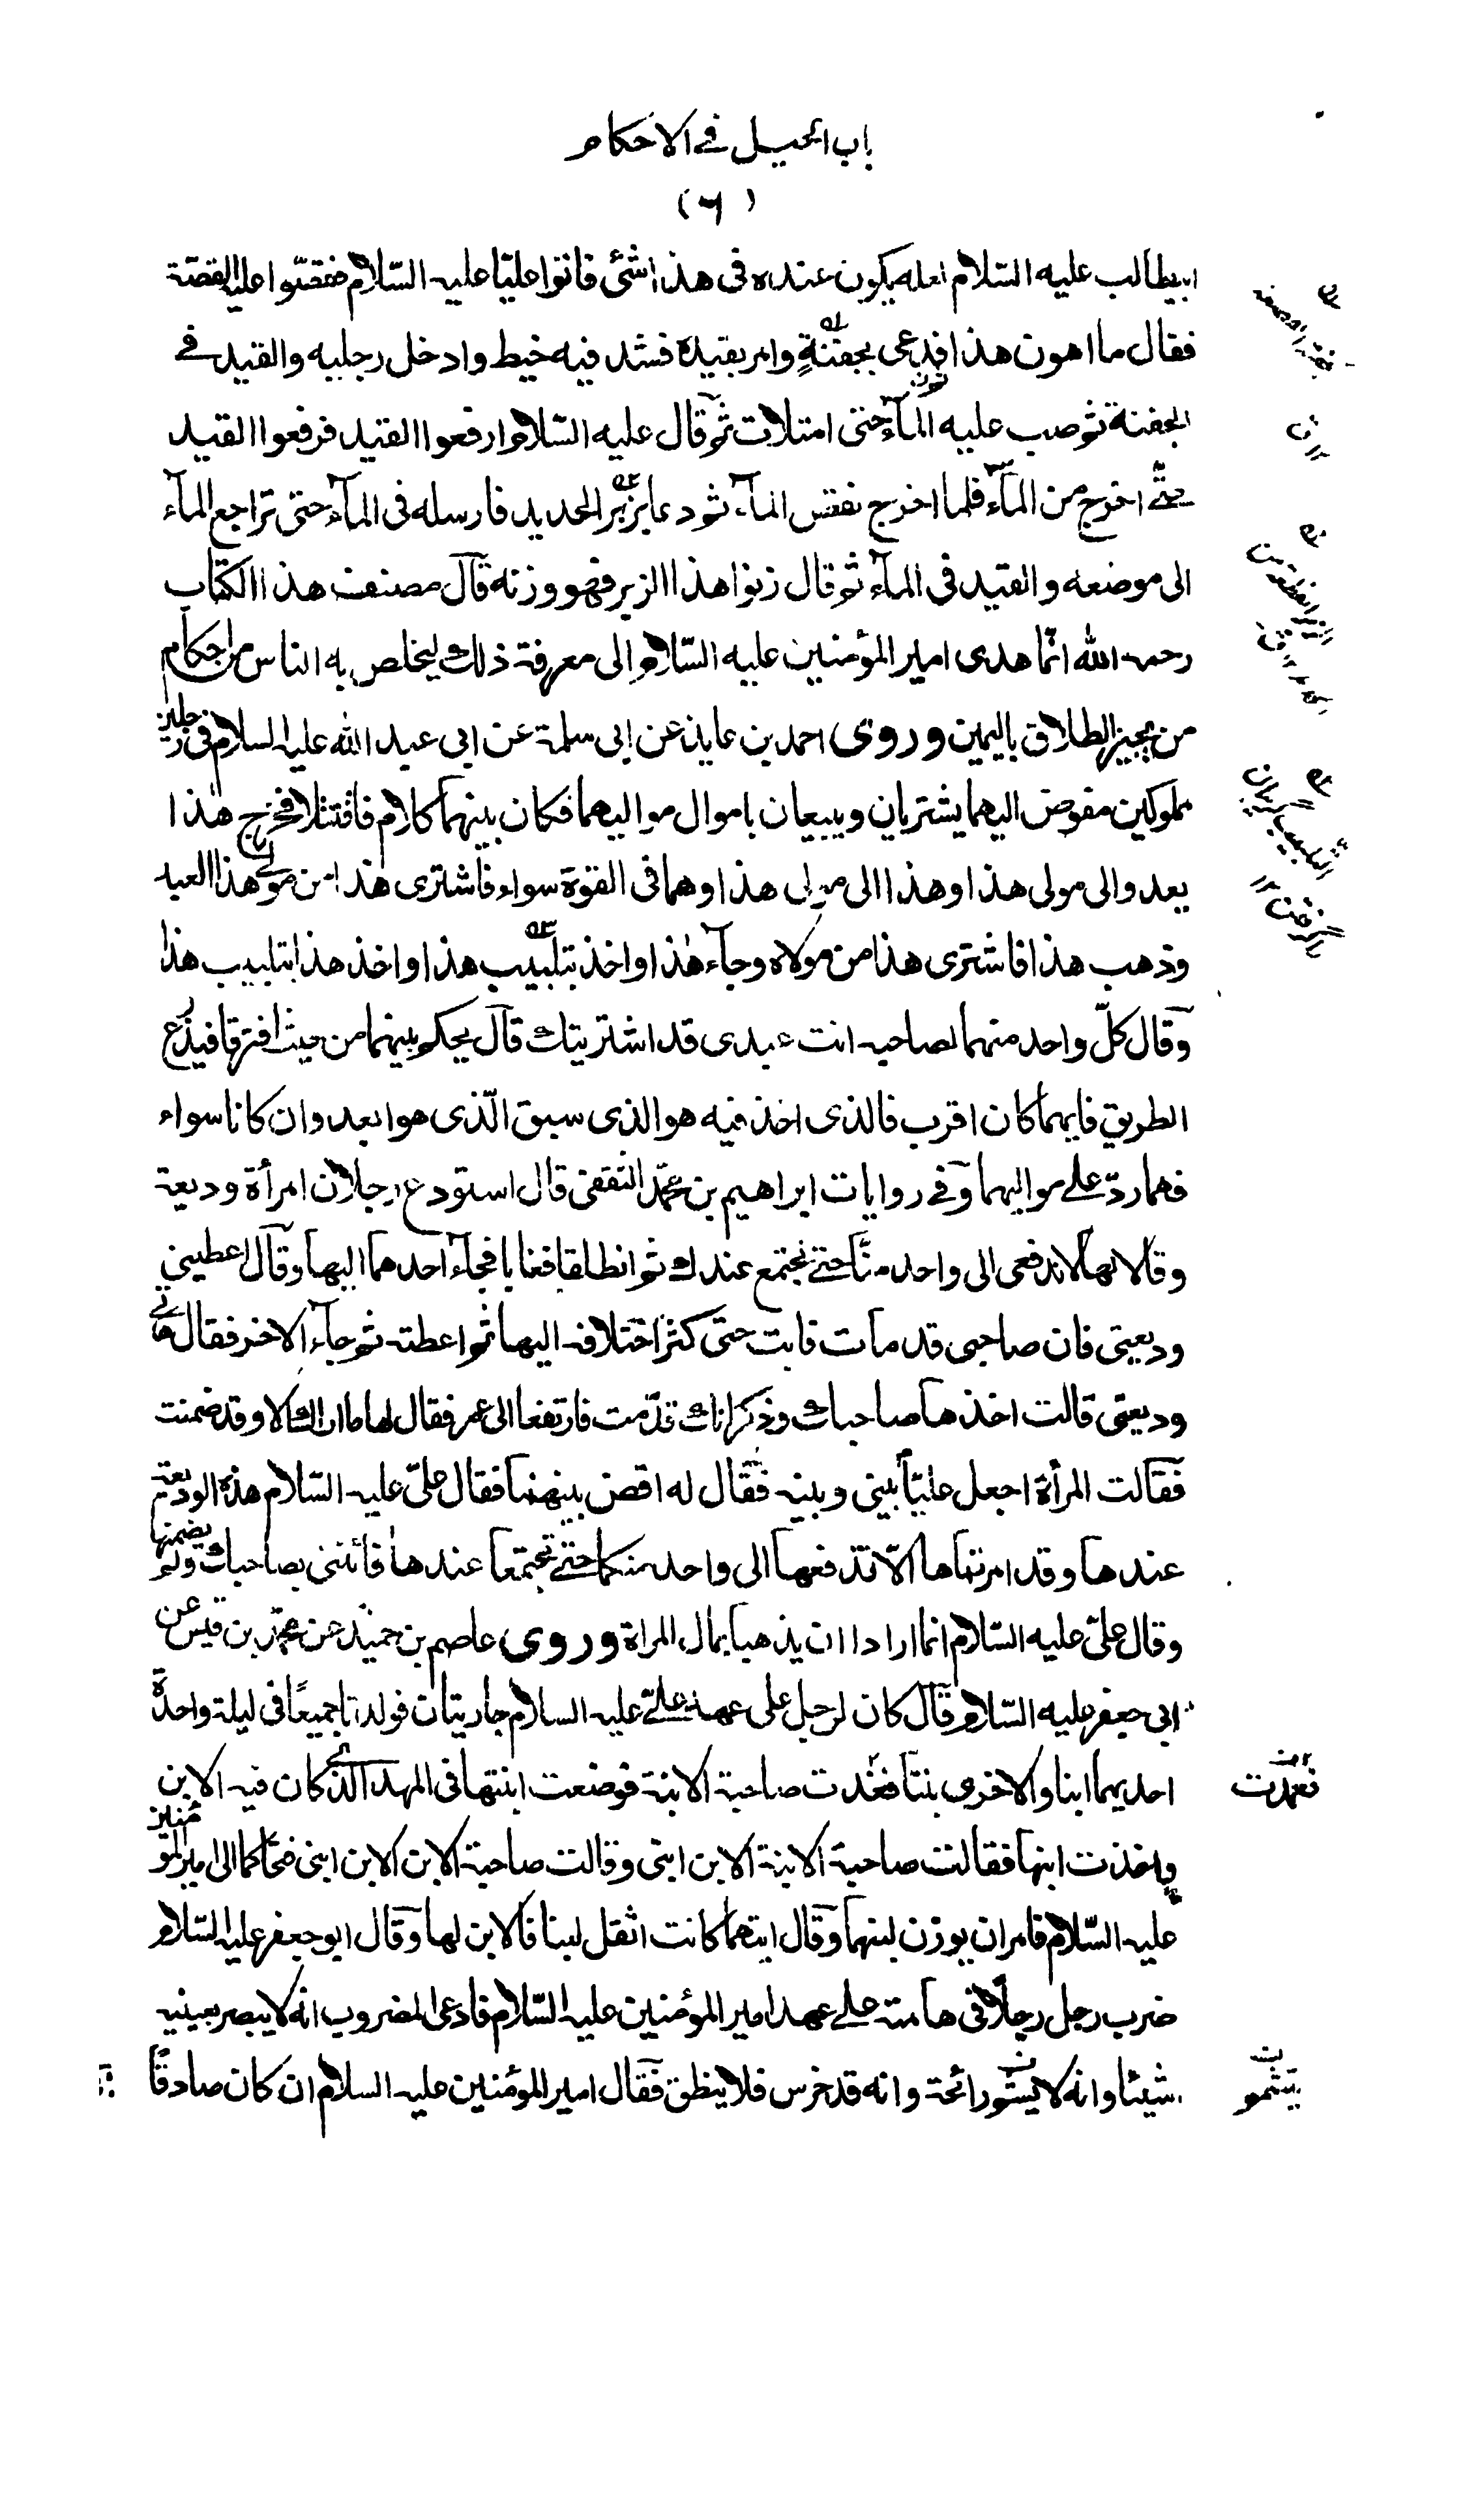 باب الحيل في الاحكام
(٦)
ابيطالب عليه السّلام لعله يكون عنده فى هذا شئ فاتوا عليّا عليه السّلام فقصّوا عليه القصّة
فقال ما اهون هذا فدعى بجفنةٍ وامر بقيده فشد فيه خيط وادخل رجليه والقيد فے
الجفنة ثم صب عليه المآء حتى امتلات ثم قال عليه السّلام ارفعوا القيد فرفعوا القيد
حتّے اخرج من المآء فلما اخرج نقص المآء ثم دعا بزبر الحديد فارسله فى المآء حتى تراجع المآء
الى موضعه والقيد فى المآء ثم قال زنوا هذا الزبر فهو وزنه قال مصنف هذا الكتاب
رحمه الله انّما هدى امير المؤمنين عليه السّلام الى معرفة ذلك ليخلص به الناس من احكام
من يجيز الطلاق باليمين وروى احمد بن عايذ عن ابى سلمة عن ابي عبد الله عليه السلام فى رجلين
مملوكين مفوض اليهما يشتريان ويبيعان باموال مواليهما فكان بينهما كلام فاقتتلا فخرج هذا
يعدو الى مولى هذا وهذا الى مولى هذا وهما فى القوة سواء فاشترى هذا من مولے هذا العبد
وذهب هذا فاشترى هذا من مولاه وجآء هذا واخذ بتلبيب هذا واخذ هذا بتلبيب هذا
وقال كلّ واحد منهما لصاحبه انت عبدى قد اشتريتك قال يحكم بينهما من حيث افترقا فيذرع
الطريق فايهما كان اقرب فالذى اخذ فيه هو الذى سبق الّذى هو ابعد وان كانا سواء
فهما ردّ علے مواليهما وفے روايات ابراهيم بن محمّد الثقفى قال استودع رجلان امرأة وديعة
وقالا لها لا تدفعى الى واحد منّا حتے نجتمع عندك ثم انطلقا فغابا فجآء احدهما اليها وقال اعطينى
وديعتى فان صاحبى قد مات فابت حتى كثر اختلافه اليها ثم اعطته ثم جآء الاخر فقال هاتے
وديعتى قالت اخذها صاحبك وذكر انك قد مت فارتفعا الى عمر فقال لها ما اراك الا وقد ضمنت
فقالت المرأة اجعل عليّاً بينى وبينه فقال له اقض بينهما فقال علىّ عليه السّلام هذه الوديعة
عندها وقد امرتماها الّا تدفعها الى واحد منكما حتے تجتمعا عندها فائتنى بصاحبك ولم يضمنها
وقال علىّ عليه السّلام انما ارادا ان يذهبا بمال المراة وروى عاصم بن حميد عن محمّد بن قيس عن
ابى جعفر عليه السّلام قال كان لرجل على عهد علےّ عليه السلام جاريتان فولدتا جميعًا فى ليلة واحدة
احديهما ابنا والاخرى بنتا فغدت صاحبة الابنة فوضعت ابنتها فى المهد الّذے كان فيه الابن
واخذت ابنها فقالت صاحبة الابنة الابن ابنى وقالت صاحبة الابن الابن ابنى فتحاكما الى امير المؤمنين
عليه السّلام فامر ان يوزن لبنهما وقال ايتهما كانت اثقل لبنا فالابن لها وقال ابو جعفر عليه السّلام
ضرب رجل رجلًا فى هامته علے عهد امير المؤمنين عليه السّلام فادعى المضروب انه لا يبصر بعينيه
شيئا وانه لا يشم رائحة وانه قد خرس فلا ينطق فقال امير المؤمنين عليه السلام ان كان صادقًا